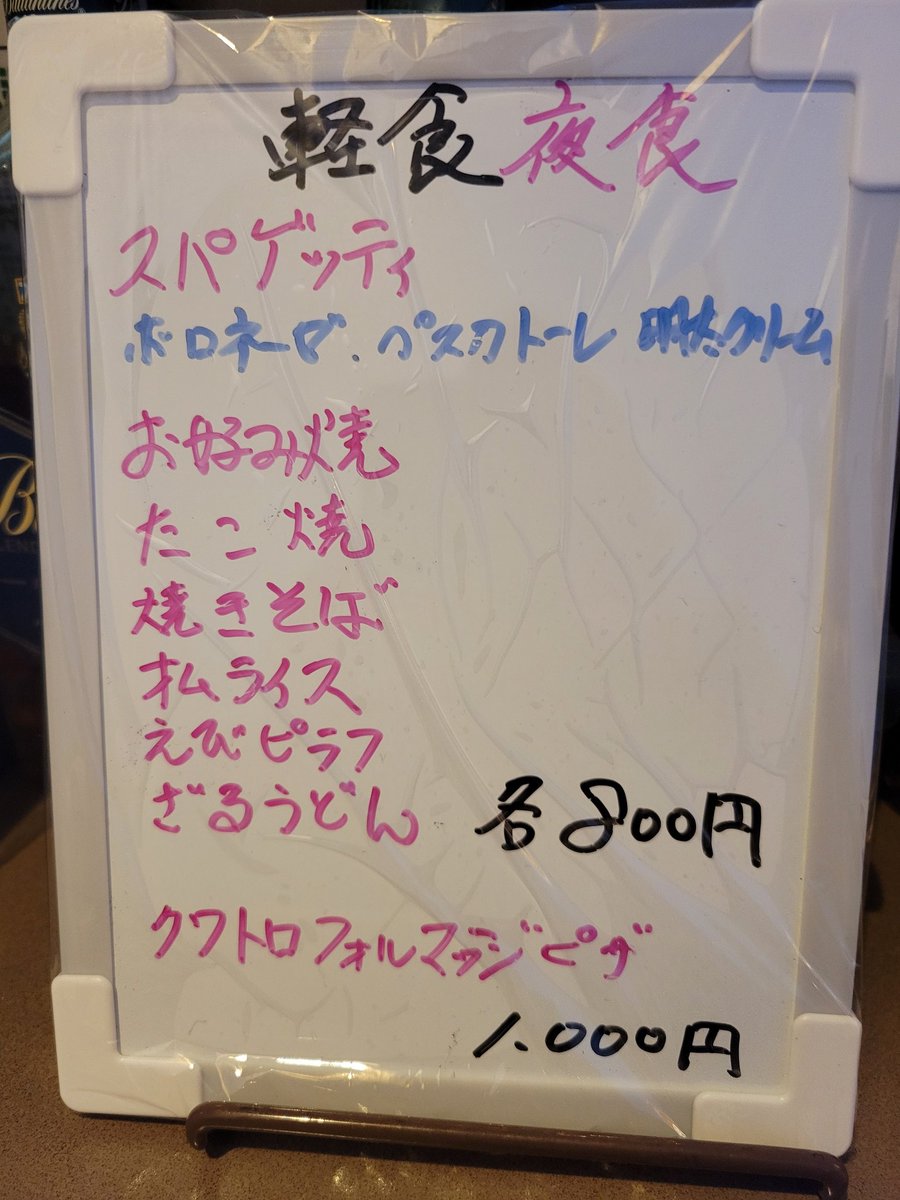 Ballantines
軽食 夜食
スパゲッティ
ボロネーゼ.ペスカトーレ 明太クリーム
お好み焼
たこ焼
焼きそば
オムライス
えびピラフ
ざるうどん 各800円
クワトロフォルマッジピザ
1.000円